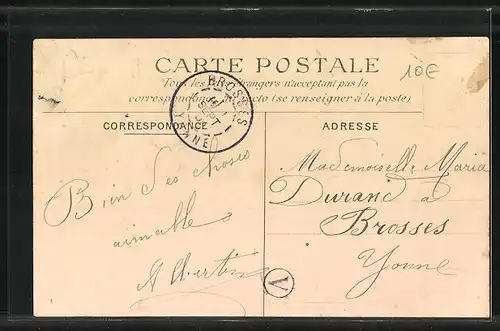 CARTE POSTALE
10€
Tous les étrangers n'acceptant pas la
correspondance recto (se renseigner à la poste)
BROSSES
SEPT
YONNE
CORRESPONDANCE
ADRESSE
Bien des choses
aimable
Mademoiselle Maria
Durand à
Brosses
Yonne
V